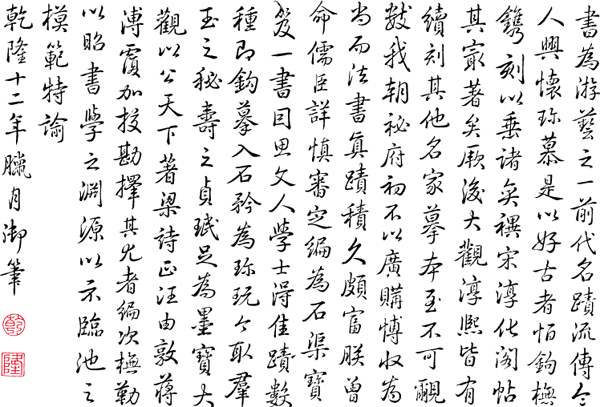 書為游藝之一前代名蹟流傳令
人興懷珎慕是以好古者恒鈎橅
鐫刻以垂諸奕禩宋淳化閣帖
其冣著矣厥後大觀淳熙皆有
續刻其他名家摹本至不可覼
數我朝祕府初不以廣購博收為
尚而法書真蹟積久頗富朕曾
命儒臣詳慎審定編為石渠寶
笈一書因思文人學士得佳蹟數
種即鈎摹入石矜為珎玩今取羣
玉之秘壽之貞珉足為墨寶大
觀以公天下著梁詩正汪由敦蔣
溥覈加挍勘擇其尤者編次橅勒
以昭書學之淵源以示臨池之
模範特諭
乾隆十二年臘月御筆
乾
隆